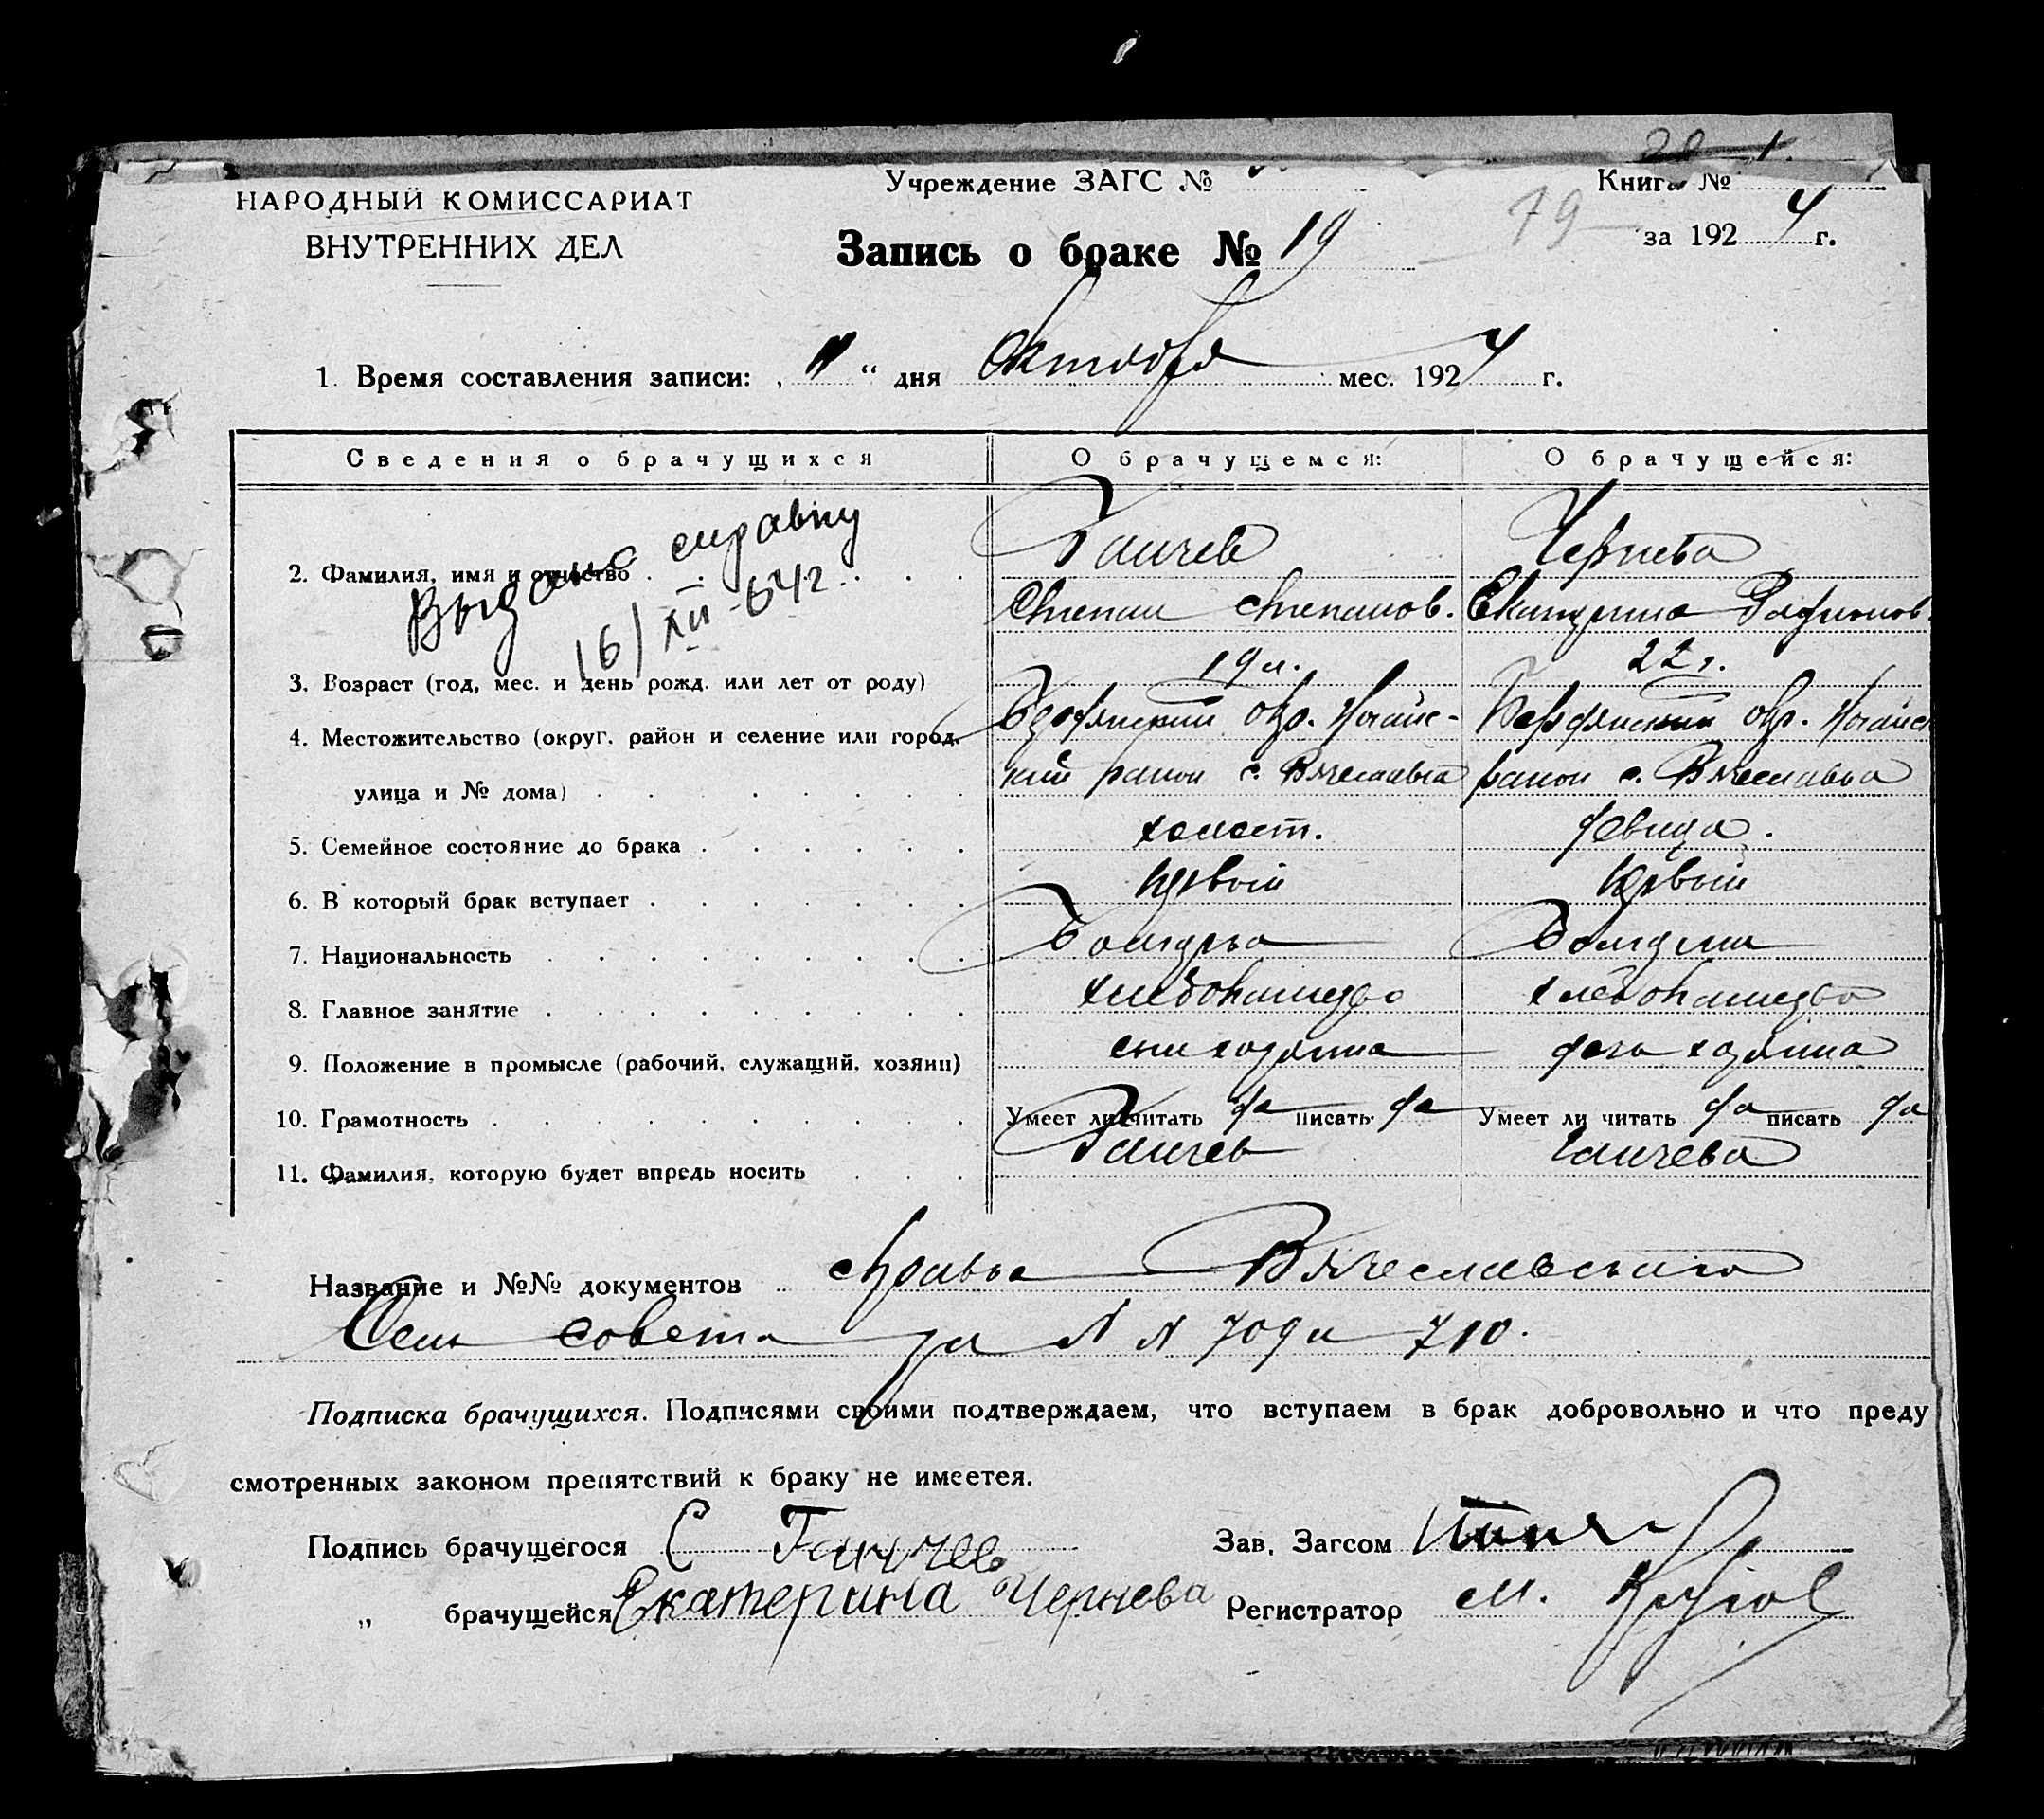 НАРОДНЫЙ КОМИССАРИАТ
ВНУТРЕННИХ ДЕЛ
Учреждение ЗАГС №
Книга №
79
за 1924 г.
Запись о браке № 19
1. Время составления записи: „ 11 “ дня Октября мес. 1924 г.
Сведения о брачущихся О брачущемся: О брачущейся:
Выдано справку
16/XII-54г.
2. Фамилия, имя и отчество Ганчев Чернева
Степан Степанов. Екатерина
3. Возраст (год, мес. и день рожд. или лет от роду) 19 л. 22 г.
4. Местожительство (округ. район и селение или город, Бердянский окр. Ногайс- Бердянский окр. Ногайск
улица и № дома) кий район с. Вячеславка район с. Вячеславка
5. Семейное состояние до брака холост. девица.
6. В который брак вступает первый первый
7. Национальность
8. Главное занятие хлебопашество хлебопашество
9. Положение в промысле (рабочий, служащий, хозяин) сын хозяина дочь хозяина
10. Грамотность Умеет ли читать да писать да Умеет ли читать да писать да
11. Фамилия, которую будет впредь носить Ганчев Ганчева
Название и №№ документов справка Вячеславского
Сель совета за N N 709 и 710.
Подписка брачущихся. Подписями своими подтверждаем, что вступаем в брак добровольно и что преду
смотренных законом препятствий к браку не имеетея.
Подпись брачущегося С Ганчев Зав. Загсом
„ брачущейся Екатерина Чернева Регистратор М.